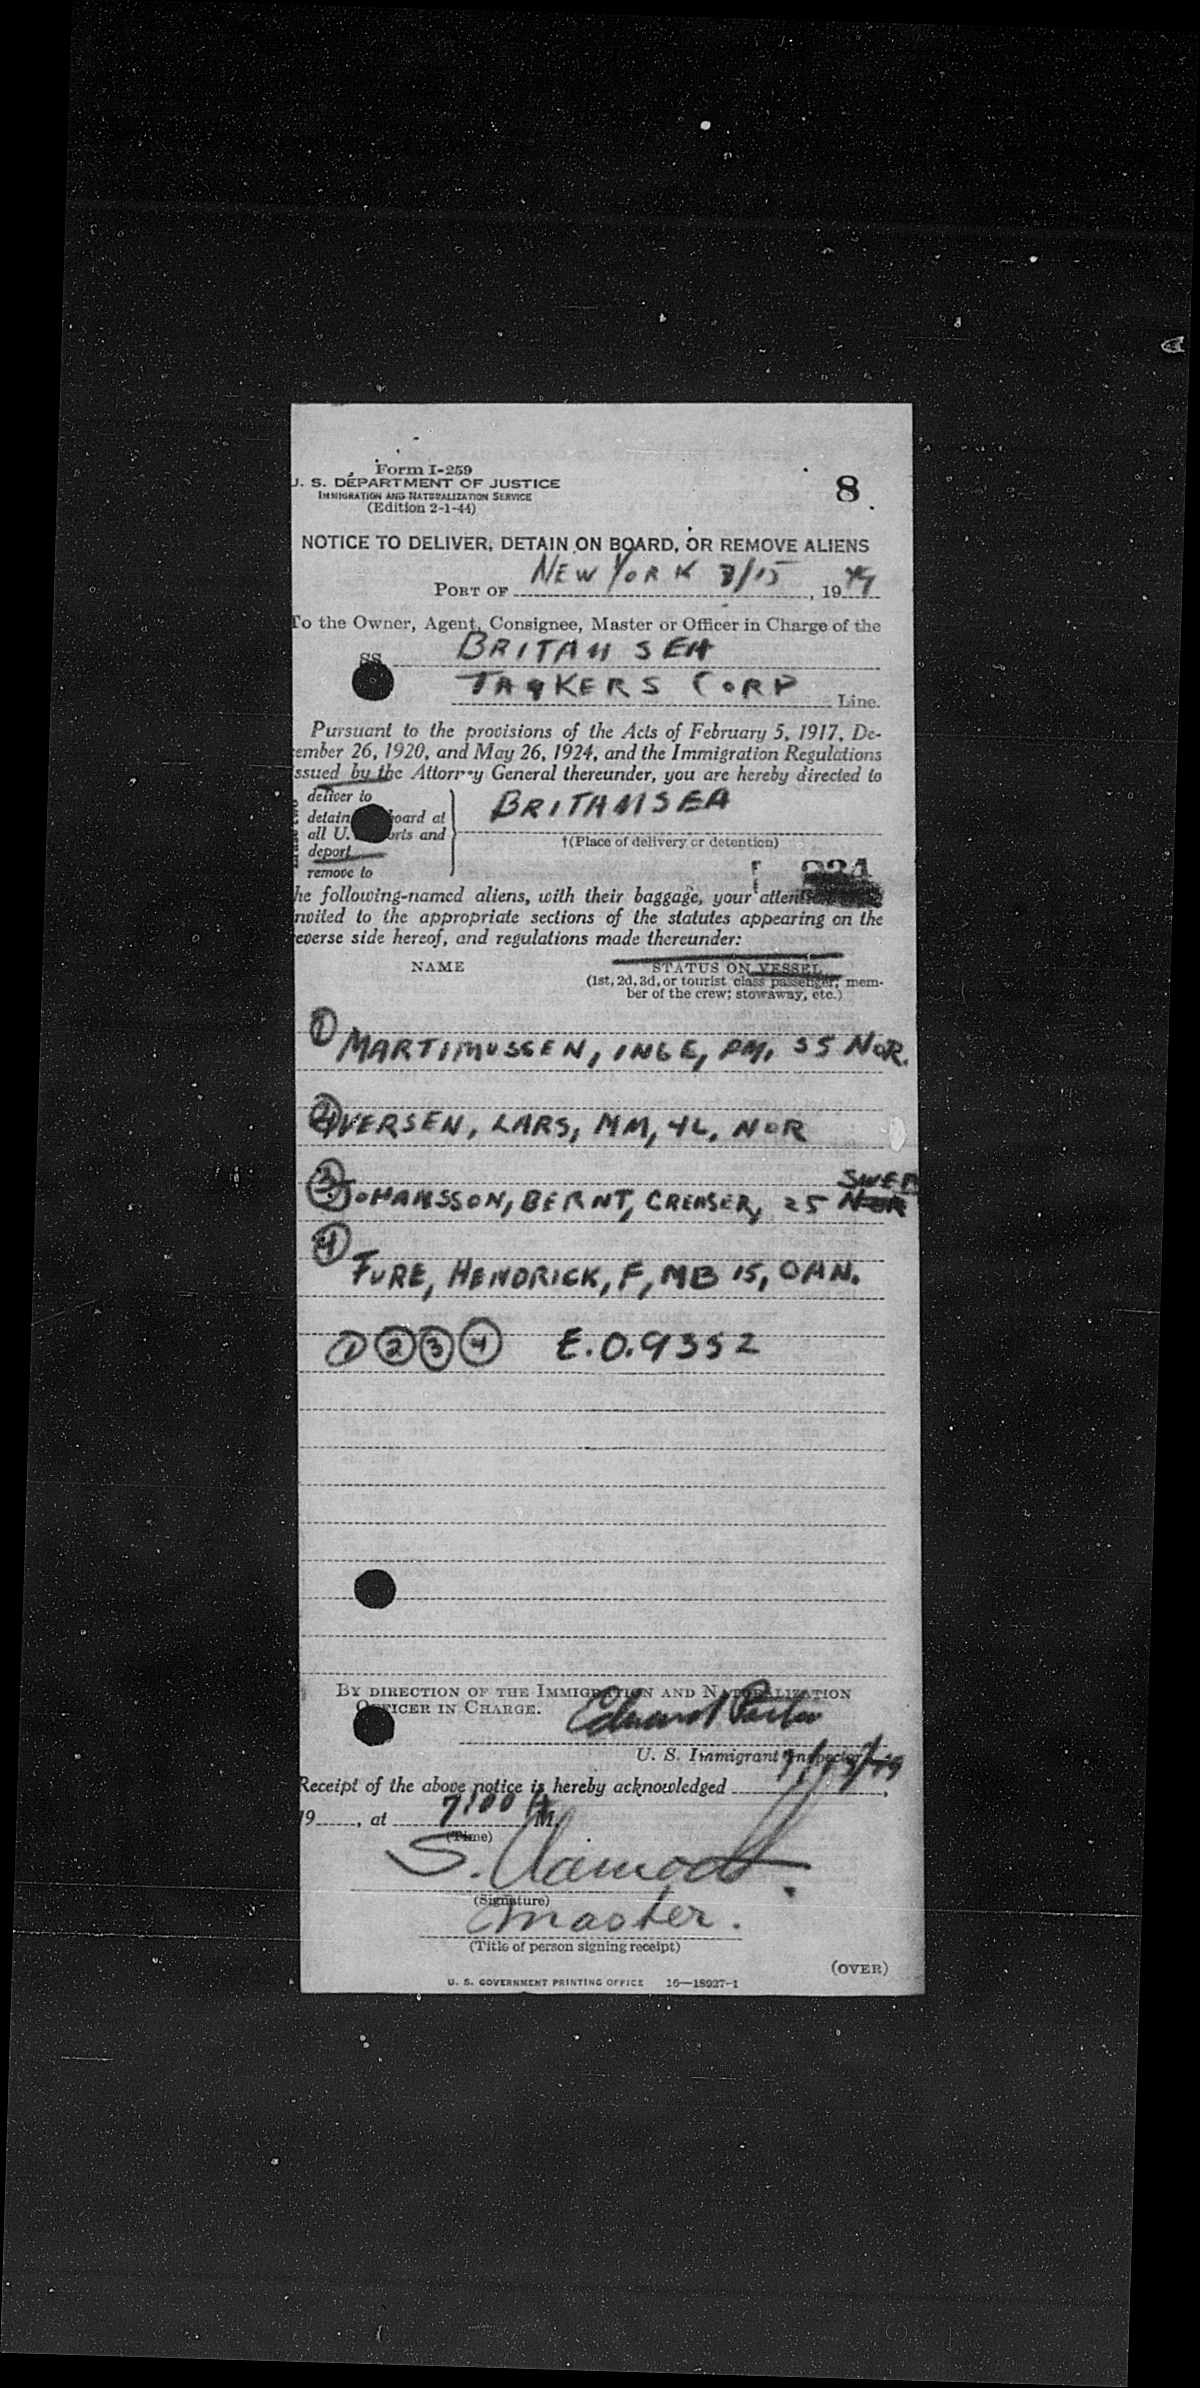 Form I-259
U. S. DEPARTMENT OF JUSTICE
IMMIGRATION AND NATURALIZATION SERVICE
(Edition 2-1-44)
8
NOTICE TO DELIVER, DETAIN ON BOARD, OR REMOVE ALIENS
PORT OF NEW YORK 7/15, 1949
To the Owner, Agent, Consignee, Master or Officer in Charge of the
SS BRITAMSEA
TANKERS CORP Line.
Pursuant to the provisions of the Acts of February 5, 1917, De-
cember 26, 1920, and May 26, 1924, and the Immigration Regulations
issued by the Attorney General thereunder, you are hereby directed to
deliver to
detain board at BRITAMSEA
all U. ports and
†(Place of delivery or detention)
deport
remove to
the following-named aliens, with their baggage, your attention
invited to the appropriate sections of the statutes appearing on the
reverse side hereof, and regulations made thereunder:
NAME STATUS ON VESSEL
(1st, 2d, 3d, or tourist class passenger; mem-
ber of the crew; stowaway, etc.)
① MARTIMUSSEN, INGE, PM, 35 NOR.
② IVERSEN, LARS, MM, 42, NOR
SWED
③ JOHANSSON, BERNT, CREASER, 25 NOR
④
FURE, HENDRICK, F, MB 15, DAN.
① ② ③ ④ E.O. 9352
BY DIRECTION OF THE IMMIGRATION AND NATURALIZATION
OFFICER IN CHARGE.
Edward
U. S. Immigrant Inspector
Receipt of the above notice is hereby acknowledged 7/15/49,
19, at 7:00 A M.
(Time)
S.
(Signature)
master.
(Title of person signing receipt)
(OVER)
U. S. GOVERNMENT PRINTING OFFICE 16—18927-1